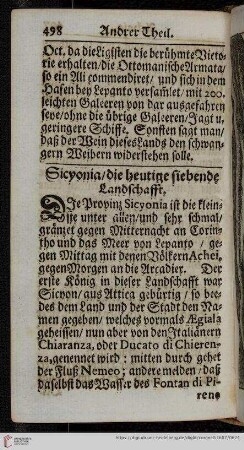 498 Andrer Theil.
Oct. da die Ligisten die berühmte Victo-
rie erhalten/die Ottomanische Armata/
so ein Ali commendiret/ und sich in dem
Hafen bey Lepanto versamlet/ mit 200.
leichten Galeeren von dar ausgefahren
seye/ohne die übrige Galeeren/Jagt u.
geringere Schiffe. Sonsten sagt man/
daß der Wein dieses Lands den schwan-
gern Weibern widerstehen solle.
Sicyonia/die heutige siebende
Landschafft.
DIe Provinz Sicyonia ist die klein-
ste unter allen/und sehr schmal/
gränzet gegen Mitternacht an Corin-
tho und das Meer von Lepanto/ ge-
gen Mittag mit denen Völkern Achei,
gegen Morgen an die Arcadier. Der
erste König in dieser Landschafft war
Sicyon/ aus Attica gebürtig/ so bee-
des dem Land und der Stadt den Na-
men gegeben/ welches vormals Ægiala
geheissen/ nun aber von den Italiänern
Chiaranza, oder Ducato di Chieren-
za, genennet wird: mitten durch gehet
der Fluß Nemeo; andere melden/ daß
daselbst das Wasser des Fontan di Pi-
rene